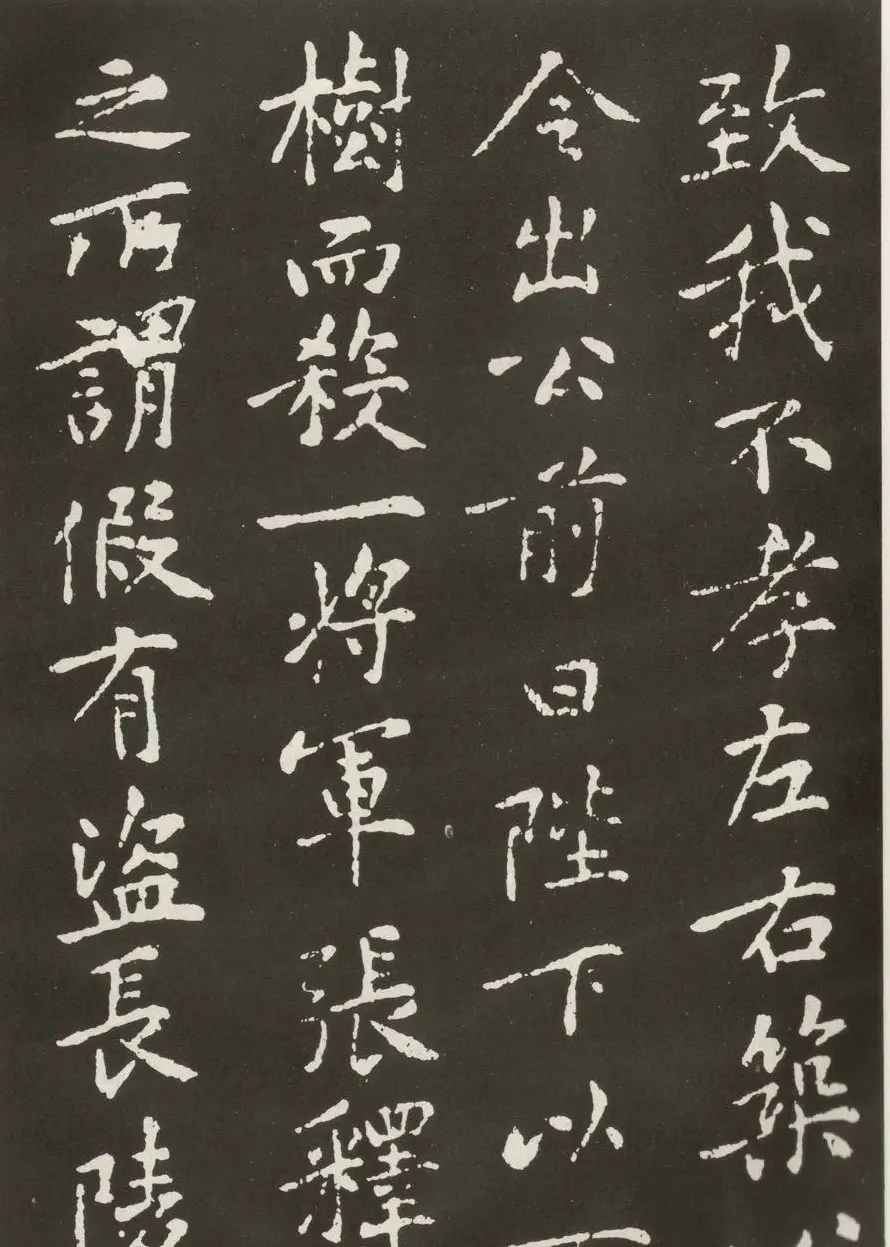 致我不孝左右築
令出公前曰陛下以
樹而殺一將軍張釋
之所謂假有盜長陵